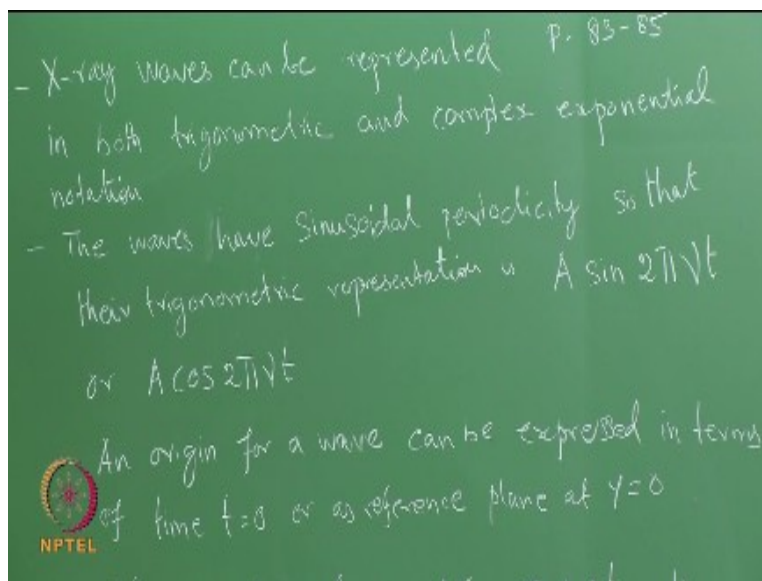 P. 83-85
- X-ray waves can be represented
in both trigonometric and complex exponential
notation
- The waves have sinusoidal periodicity so that
their trigonometric representation is A sin 2πνt
or A cos 2πνt
An origin for a wave can be expressed in terms
of time t=0 or as reference plane at y=0
NPTEL